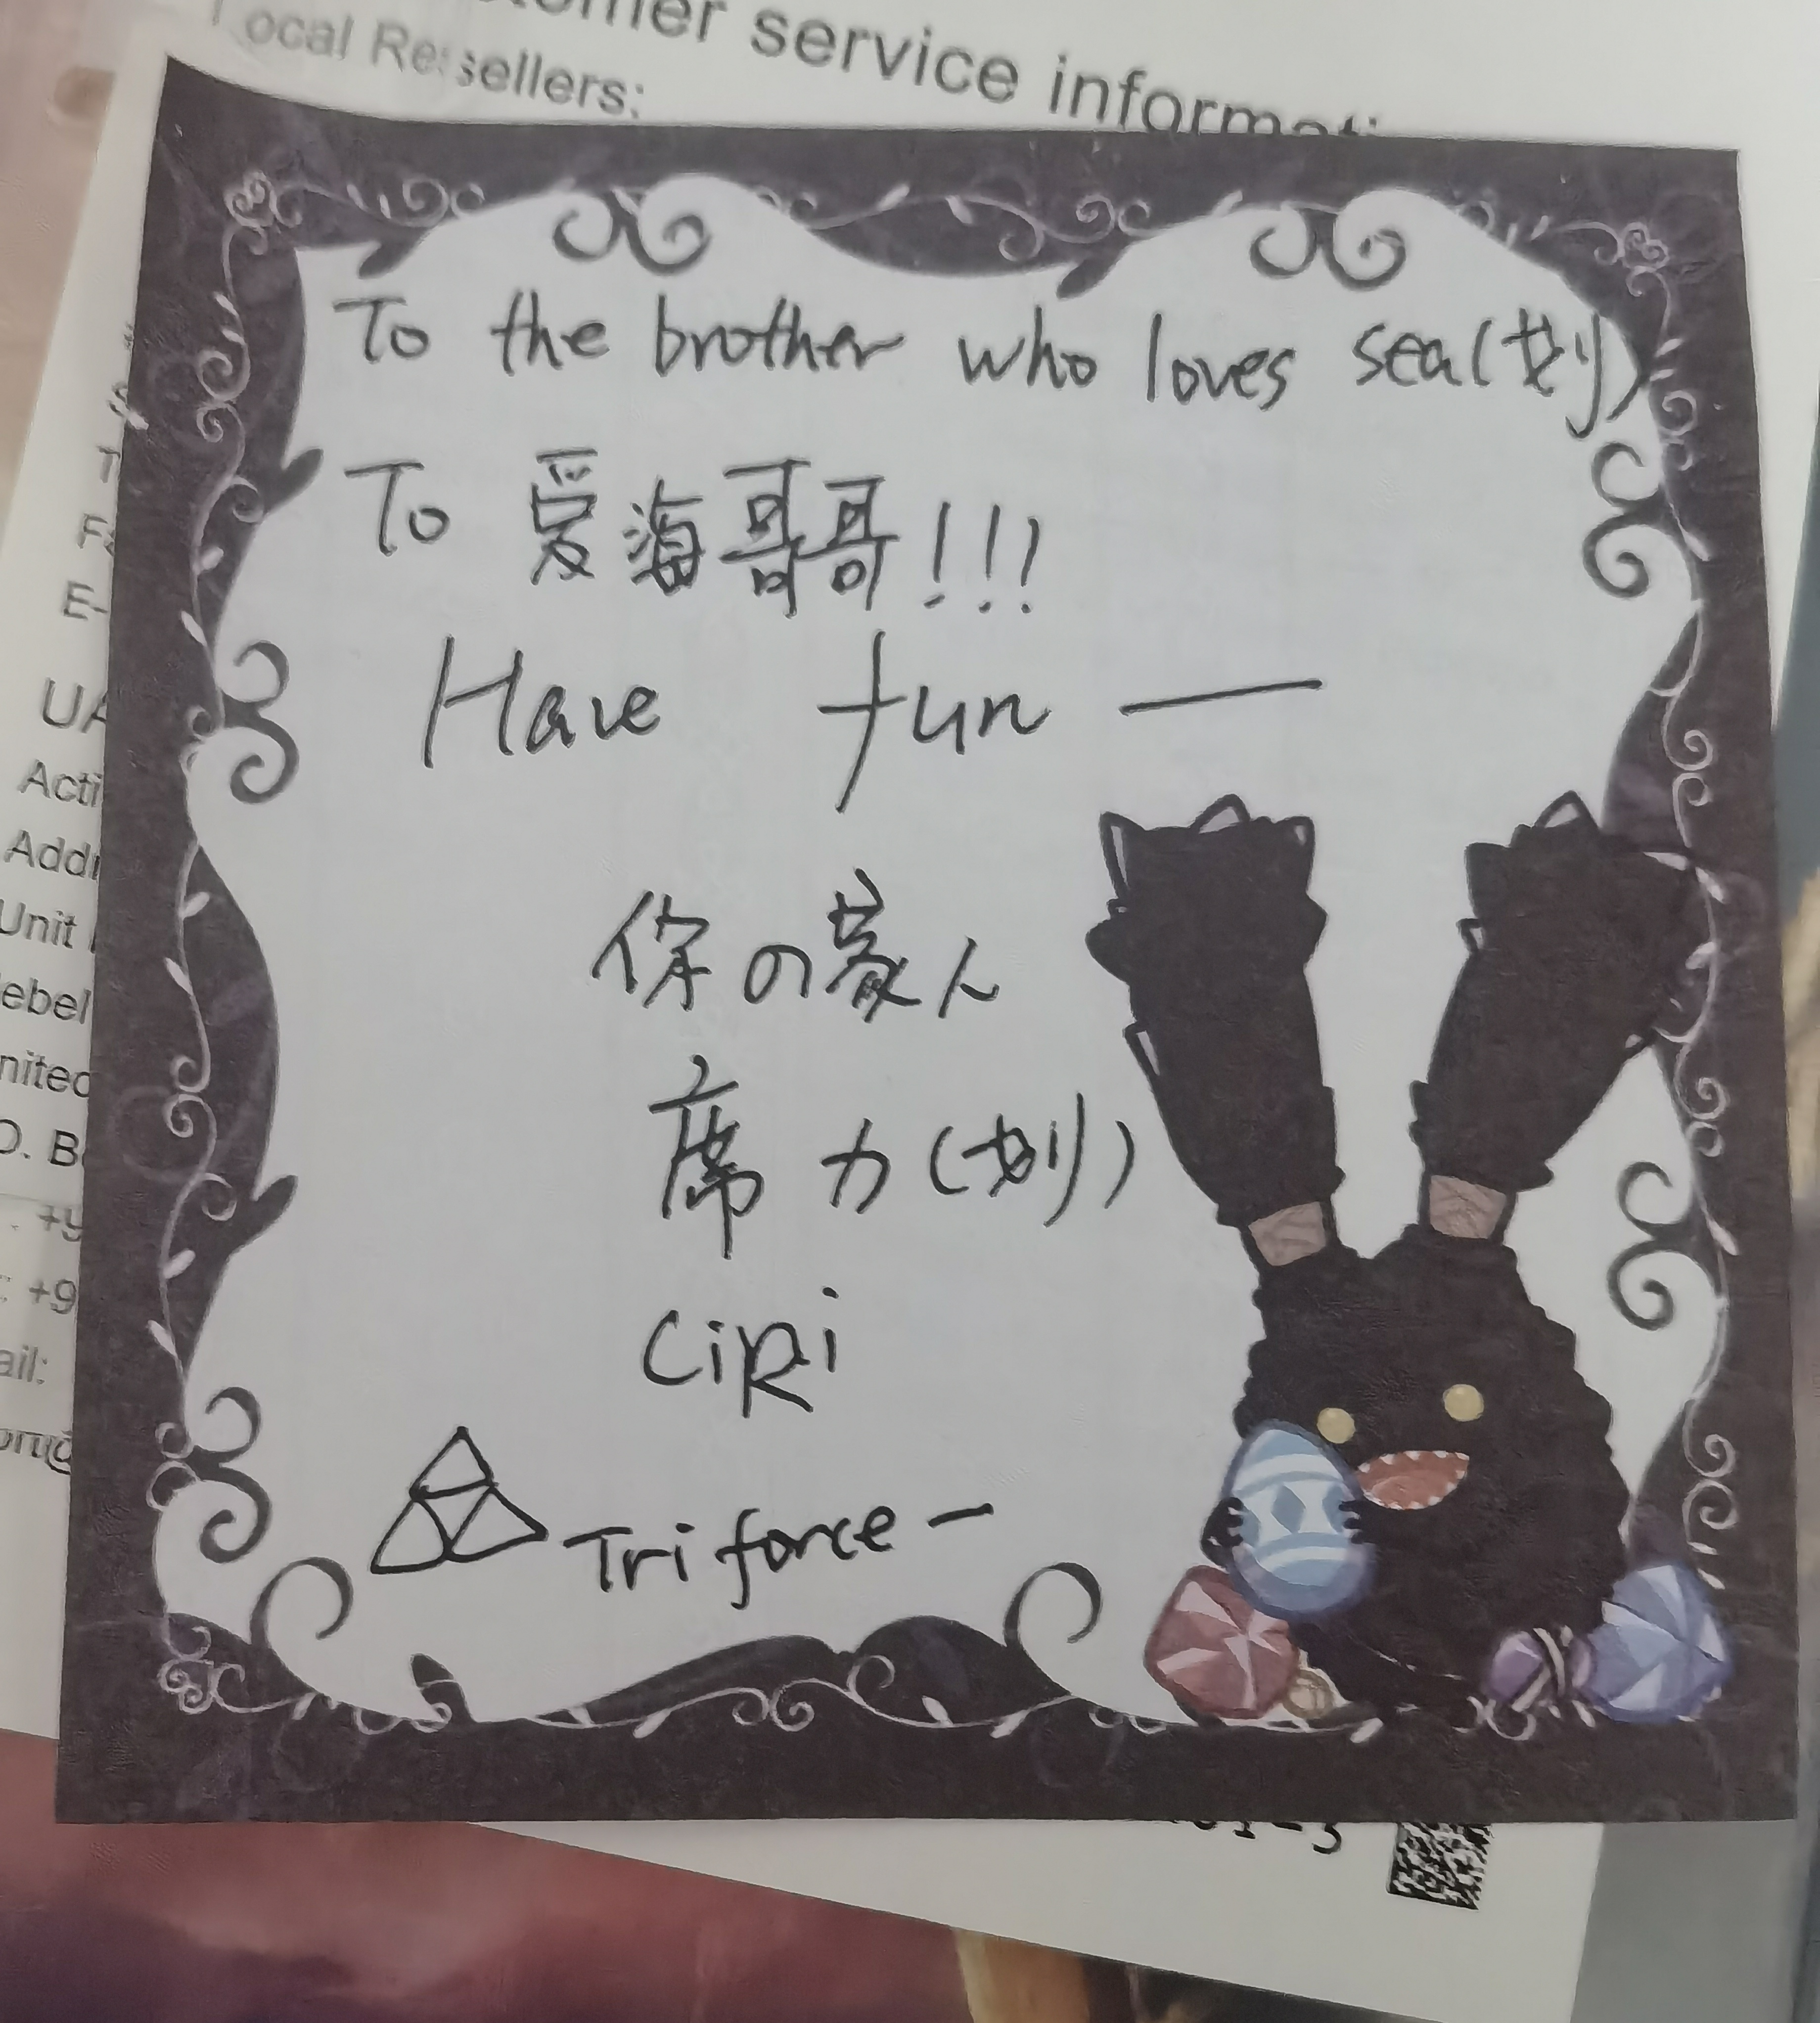 customer service informati
Local Resellers:
To the brother who loves sea(划)
To 爱海哥哥!!!
Have fun —
你の蒙人
席力(划)
CiRi
Triforce —
E-
UA
Acti
Addr
Unit
ebel
nited
O. B
+9
ail: